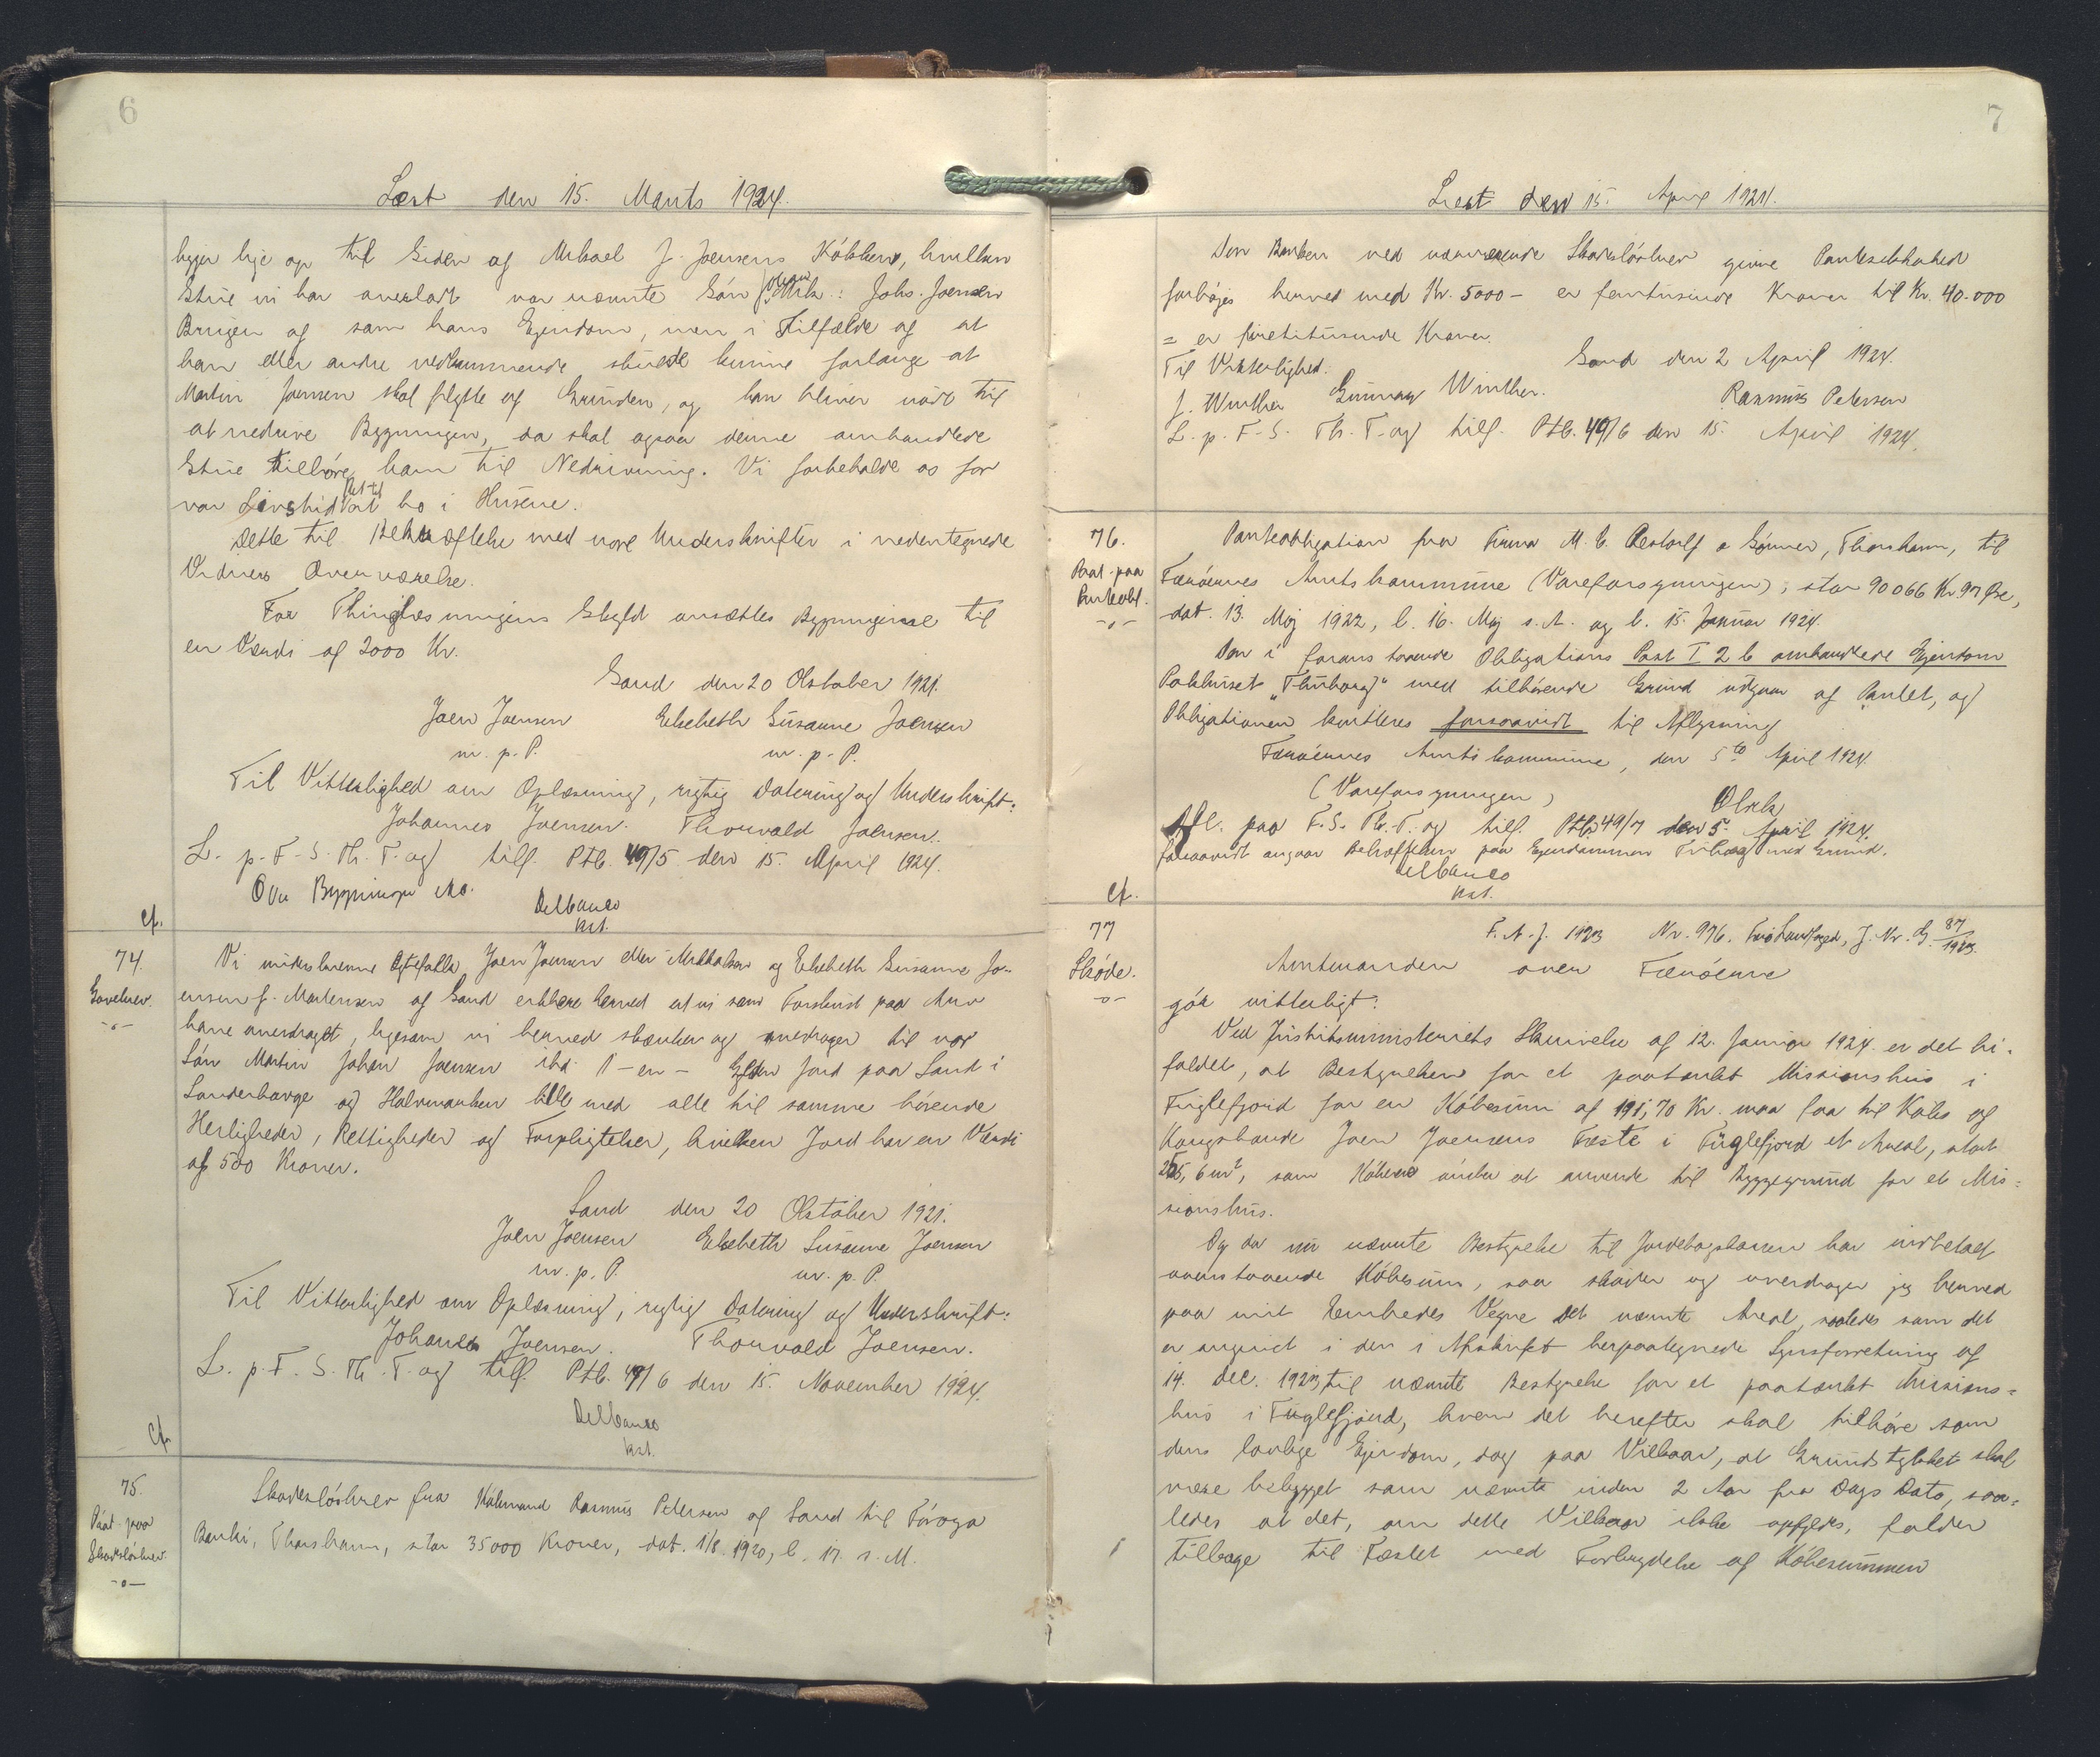 6
Læst den 15. Marts 1924.
ligger lige op til Siden af Mikael J. Joensens Køkken, hvilken
Stue vi har overladt vor nævnte Søn Joh. Joensen
Brugen af som hans Ejendom, men i Tilfælde af at
han eller andre vedkommende skulde kunne forlange at
Martin Joensen skal flytte af Grunden, og han bliver nødt til
at nedrive Bygningen, da skal ogsaa denne omhandlede
Stue tilhøre ham til Nedrivning. Vi forbeholde os for
vor Livstid Ret til at bo i Husene.
Dette til Bekræftelse med vore Underskrifter i nedentegnede
Vidners Overværelse.
For Thinglæsningens Skyld ansættes Bygningerne til
en Værdi af 2000 Kr.
Sand den 20 Oktober 1921.
Joen Joensen Elsebeth Susanne Joensen
m. p. P. m. p. P.
Til Vitterlighed om Oplæsning, rigtig Datering og Underskrift:
Johannes Joensen. Thorvald Joensen.
L. p. F. S. Th. T. og tilf. Ptb. 49/5 den 15. April 1924.
Ovu Bygninger
Delbanco
kst.
cf.
74.
Gavebrev.
-o-
Vi underskrevne Ægtefolk Joen Joensen eller Mikkelsen og Elsebeth Susanne Jo-
ensen f. Mortensen af Sand erklære herved at vi som Forskud paa Arv
have overdraget, ligesom vi herved skænker og overdrager til vor
Søn Martin Johan Joensen ibd 1 - en - Gylden Jord paa Sand i
Sønderhavge og Halvmarken lille med alle til samme hørende
Herligheder, Rettigheder og Forpligtelser, hvilken Jord har en Værdi
af 500 Kroner.
Sand den 20 Oktober 1921.
Joen Joensen Elsebeth Susanne Joensen
m. p. P. m. p. P.
Til Vitterlighed om Oplæsning, rigtig Datering og Underskrift:
Johannes Joensen. Thorvald Joensen.
L. p. F. S. Th. T. og tilf. Ptb. 49/6 den 15. November 1924.
Delbanco
kst.
cf.
75.
Paat. paa
Skadesløsbrev.
-o-
Skadesløsbrev fra Købmand Rasmus Petersen af Sand til Føroya
Banki, Thorshavn, stor 35000 Kroner, dat. 1/8. 1920, l. 17. s. M.
7
Læst den 15. April 1924.
Den Banken ved nærværende Skadesløsbrev givne Pantesikkerhed
forhøjes herved med Kr. 5000 - er femtusinde Kroner til Kr. 40.000
= er firetitusinde Kroner.
Til Vitterlighed. Sand den 2 April 1924.
J. Winther Gunnar Winther. Rasmus Petersen
L. p. F. S. Th. T. og tilf. Ptb. 49/6 den 15. April 1924.
76.
Paat. paa
Panteobl.
-o-
Panteobligation fra Firma M. C. Restorff & Sønner, Thorshavn, til
Færøernes Amtskommune (Vareforsyningen), stor 90066 Kr. 97 Øre,
dat. 13. Maj 1922, l. 16. Maj s. A. og l. 15. Januar 1924.
Den i foranstaaende Obligations Post I 2 b omhandlede Ejendom
Pakhuset "Thuborg" med tilhørende Grund udgaar af Pantet, og
Obligationen kvitteres forsaavidt til Aflysning
Færøernes Amtskommune, den 5te April 1924.
(Vareforsyningen)
Afl. paa F. S. Th. T. og tilf. Ptb. 49/7 den 5. April 1924.
forsaavidt angaar Behæftelsen paa Ejendommen Tuborg med Grund.
Delbanco
kst.
cf.
77
Skøde.
-o-
F. A. J. 1923 Nr. 976. Landfoged, J. Nr. G. 87/1923.
Amtmanden over Færøerne
gør vitterligt:
Ved Justitsministeriets Skrivelse af 12. Januar 1924 er det bi-
faldet, at Bestyrelsen for et paatænkt Missionshus i
Fuglefjord for en Købesum af 191,70 Kr. maa faa til Købs af
Kongsbonde Joen Joensens Fæste i Fuglefjord et Areal, stort
255,6 m², som Køberne ønske at anvende til Byggegrund for et Mis-
sionshus.
Og da nu nævnte Bestyrelse til Jordebogskassen har indbetalt
ovenstaaende Købesum, saa skøder og overdrager jeg herved
paa mit Embedes Vegne det nævnte Areal, saaledes som det
er angivet i den i Afskrift herpaategnede Synsforretning af
14. Dec. 1923, til nævnte Bestyrelse for et paatænkt Missions-
hus i Fuglefjord, hvem det herefter skal tilhøre som
dens lovlige Ejendom, dog paa Vilkaar, at Grundstykket skal
være bebygget som nævnte inden 2 Aar fra Dags Dato, saa-
ledes at det, om dette Vilkaar ikke opfyldes, falder
tilbage til Fæstet med Fortrydelse af Købesummen